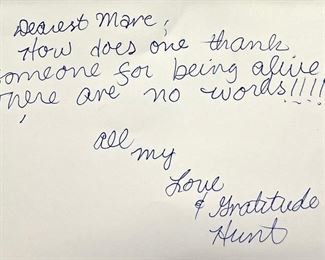 Dearest Mare,
How does one thank
someone for being alive
There are no words!!!!
all
my
Love
& Gratitude
Hunt